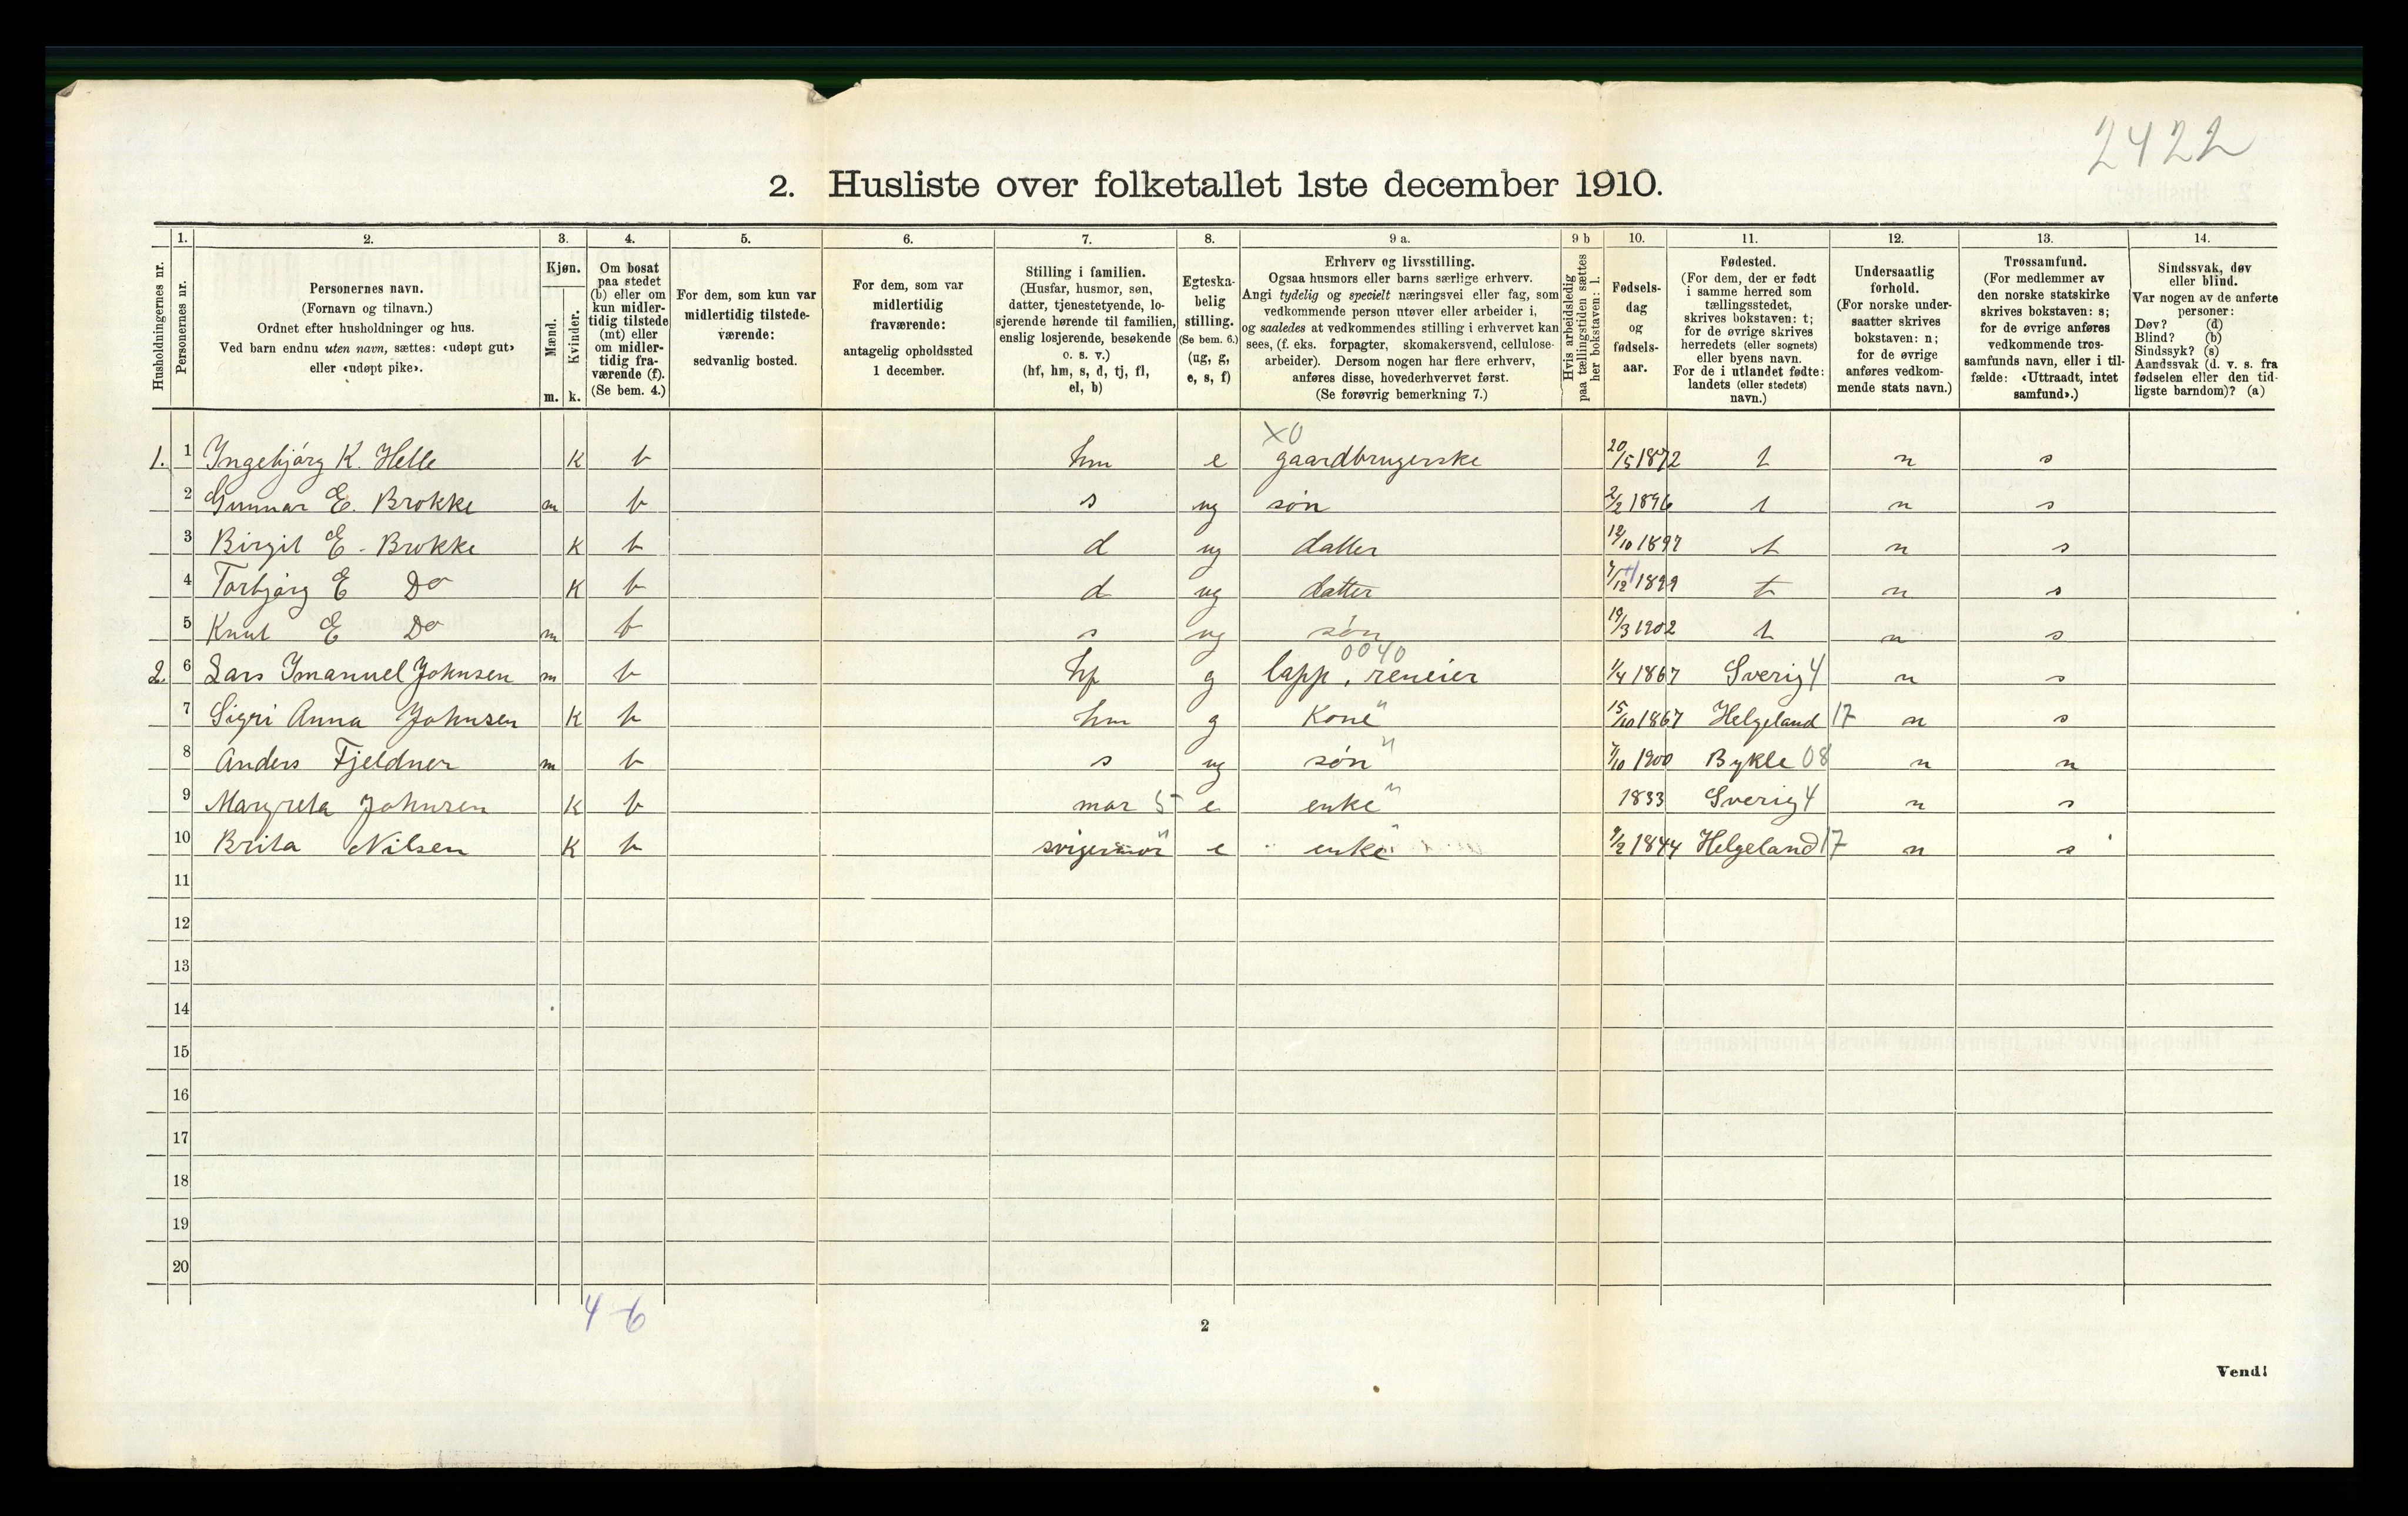 2422
2. Husliste over folketallet 1ste december 1910.
Husholdningernes nr.
1. Personernes nr.
2. Personernes navn.
(Fornavn og tilnavn.)
Ordnet efter husholdninger og hus.
Ved barn endnu uten navn, sættes: «udøpt gut»
eller «udøpt pike».
3. Kjøn.
Mænd. m.
Kvinder. k.
4. Om bosat
paa stedet
(b) eller om
kun midler-
tidig tilstede
(mt) eller
om midler-
tidig fra-
værende (f).
(Se bem. 4.)
5. For dem, som kun var
midlertidig tilstede-
værende:
sedvanlig bosted.
6. For dem, som var
midlertidig
fraværende:
antagelig opholdssted
1 december.
7. Stilling i familien.
(Husfar, husmor, søn,
datter, tjenestetyende, lo-
sjerende hørende til familien,
enslig losjerende, besøkende
o. s. v.)
(hf, hm, s, d, tj, fl,
el, b)
8. Egteska-
belig
stilling.
(Se bem. 6.)
(ug, g,
e, s, f)
9 a. Erhverv og livsstilling.
Ogsaa husmors eller barns særlige erhverv.
Angi tydelig og specielt næringsvei eller fag, som
vedkommende person utøver eller arbeider i,
og saaledes at vedkommendes stilling i erhvervet kan
sees, (f. eks. forpagter, skomakersvend, cellulose-
arbeider). Dersom nogen har flere erhverv,
anføres disse, hovederhvervet først.
(Se forøvrig bemerkning 7.)
9 b Hvis arbeidsledig
paa tællingstiden sættes
her bokstaven: l.
10. Fødsels-
dag
og
fødsels-
aar.
11. Fødested.
(For dem, der er født
i samme herred som
tællingsstedet,
skrives bokstaven: t;
for de øvrige skrives
herredets (eller sognets)
eller byens navn.
For de i utlandet fødte:
landets (eller stedets)
navn.)
12. Undersaatlig
forhold.
(For norske under-
saatter skrives
bokstaven: n;
for de øvrige
anføres vedkom-
mende stats navn.)
13. Trossamfund.
(For medlemmer av
den norske statskirke
skrives bokstaven: s;
for de øvrige anføres
vedkommende tros-
samfunds navn, eller i til-
fælde: «Uttraadt, intet
samfund».)
14. Sindssvak, døv
eller blind.
Var nogen av de anførte
personer:
Døv? (d)
Blind? (b)
Sindssyk? (s)
Aandssvak (d. v. s. fra
fødselen eller den tid-
ligste barndom)? (a)
X0
1. 1 Ingebjørg K. Helle K b hm e gaardbrugerske 20/5 1872 t n s
2 Gunnar E. Brokke m b s ug søn 2/2 1896 t n s
3 Birgit E. Brokke K b d ug datter 12/10 1897 t n s
4 Torbjørg E Do K b d ug datter 7/12 1899 t n s
5 Knut E Do m b s ug søn 19/3 1902 t n s
0040
2. 6 Lars Imanuel Johnsen m b hf g lapp, reneier 1/4 1867 Sverig 4 n s
7 Sigri Anna Johnsen K b hm g Kone " 15/10 1867 Helgeland 17 n s
8 Anders Fjeldner m b s ug søn " 7/10 1900 Bykle 08 n n
9 Margreta Johnsen K b mor 5 e enke " 1833 Sverig 4 n s
10 Brita Nilsen K b svigermor " e enke " 9/2 1844 Helgeland 17 n s
11
12
13
14
15
16
17
18
19
20
4 - 6
2
Vend!